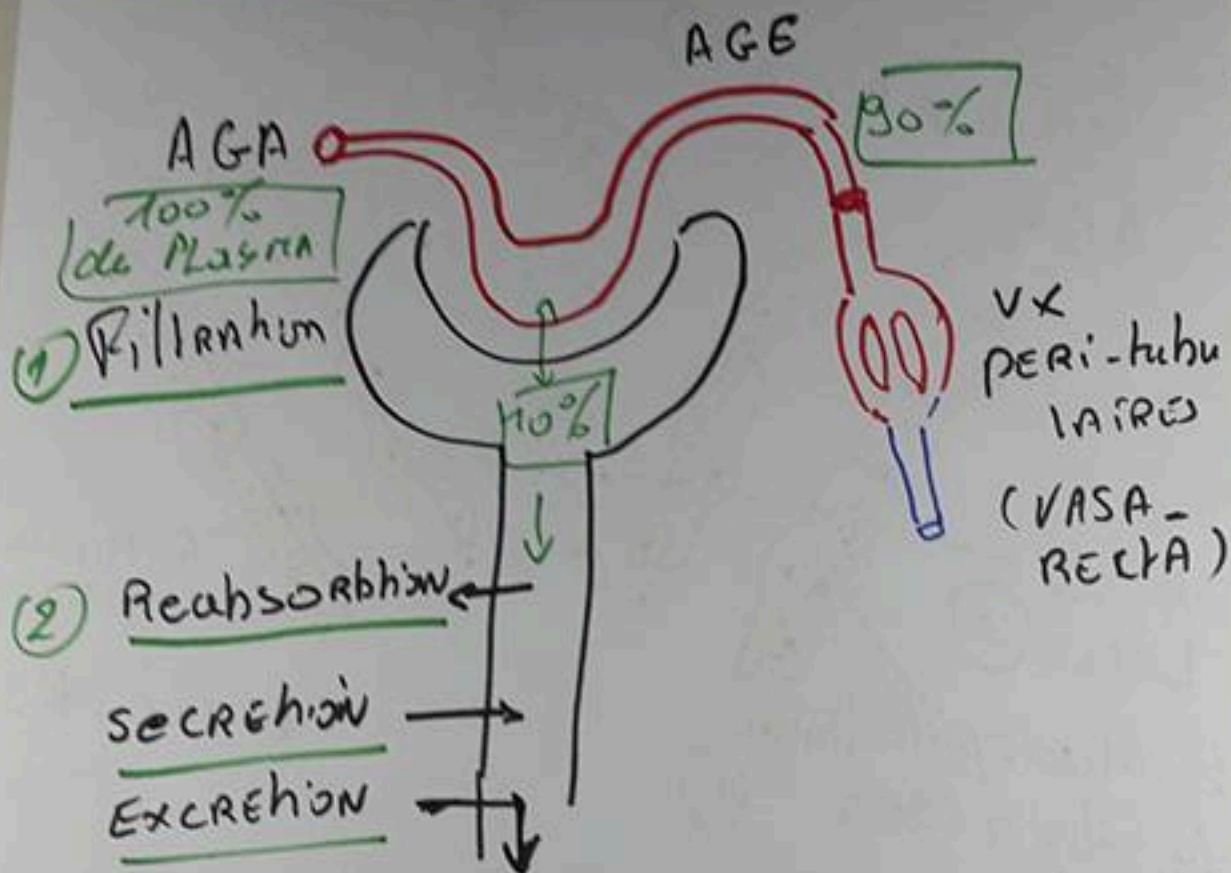 AGE
AGA
90%
100%
de PLASMA
① Filtration
10%
VX
PERi-tubu
lAiRES
(VASA-
RECtA)
② ReabsoRbtion
SECREtion
EXCREtion